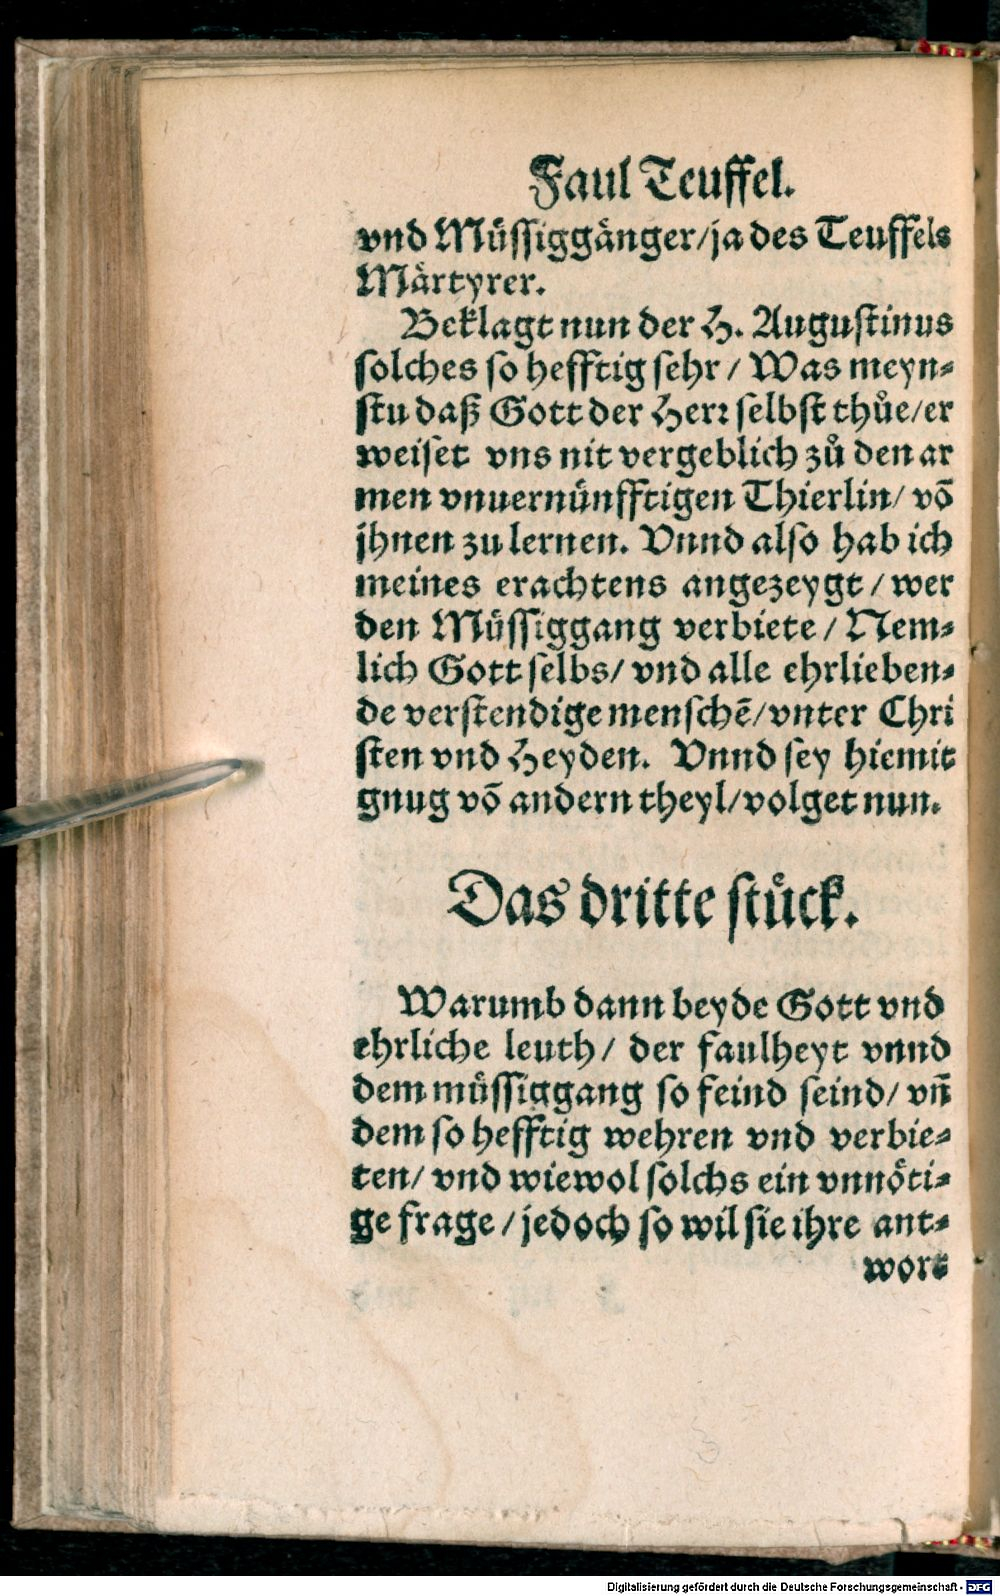 Faul Teuffel.
vnd Müssiggänger/ja des Teuffels
Märtyrer.
Beklagt nun der H. Augustinus
solches so hefftig sehr / Was meyn⸗
stu daß Gott der Herꝛ selbst thuͤe/er
weiset vns nit vergeblich zuͦ den ar
men vnuernünfftigen Thierlin/ võ
jhnen zu lernen. Vnnd also hab ich
meines erachtens angezeygt / wer
den Müssiggang verbiete / Nem⸗
lich Gott selbs/ vnd alle ehrlieben⸗
de verstendige menschẽ/vnter Chri
sten vnd Heyden. Vnnd sey hiemit
gnug võ andern theyl/volget nun.
Das dritte stuͤck.
Warumb dann beyde Gott vnd
ehrliche leuth/ der faulheyt vnnd
dem müssiggang so feind seind/ vñ
dem so hefftig wehren vnd verbie⸗
ten/ vnd wiewol solchs ein vnnöti⸗
ge frage / jedoch so wil sie ihre ant⸗
wort
3
Digitalisierung gefördert durch die Deutsche Forschungsgemeinschaft - DFG